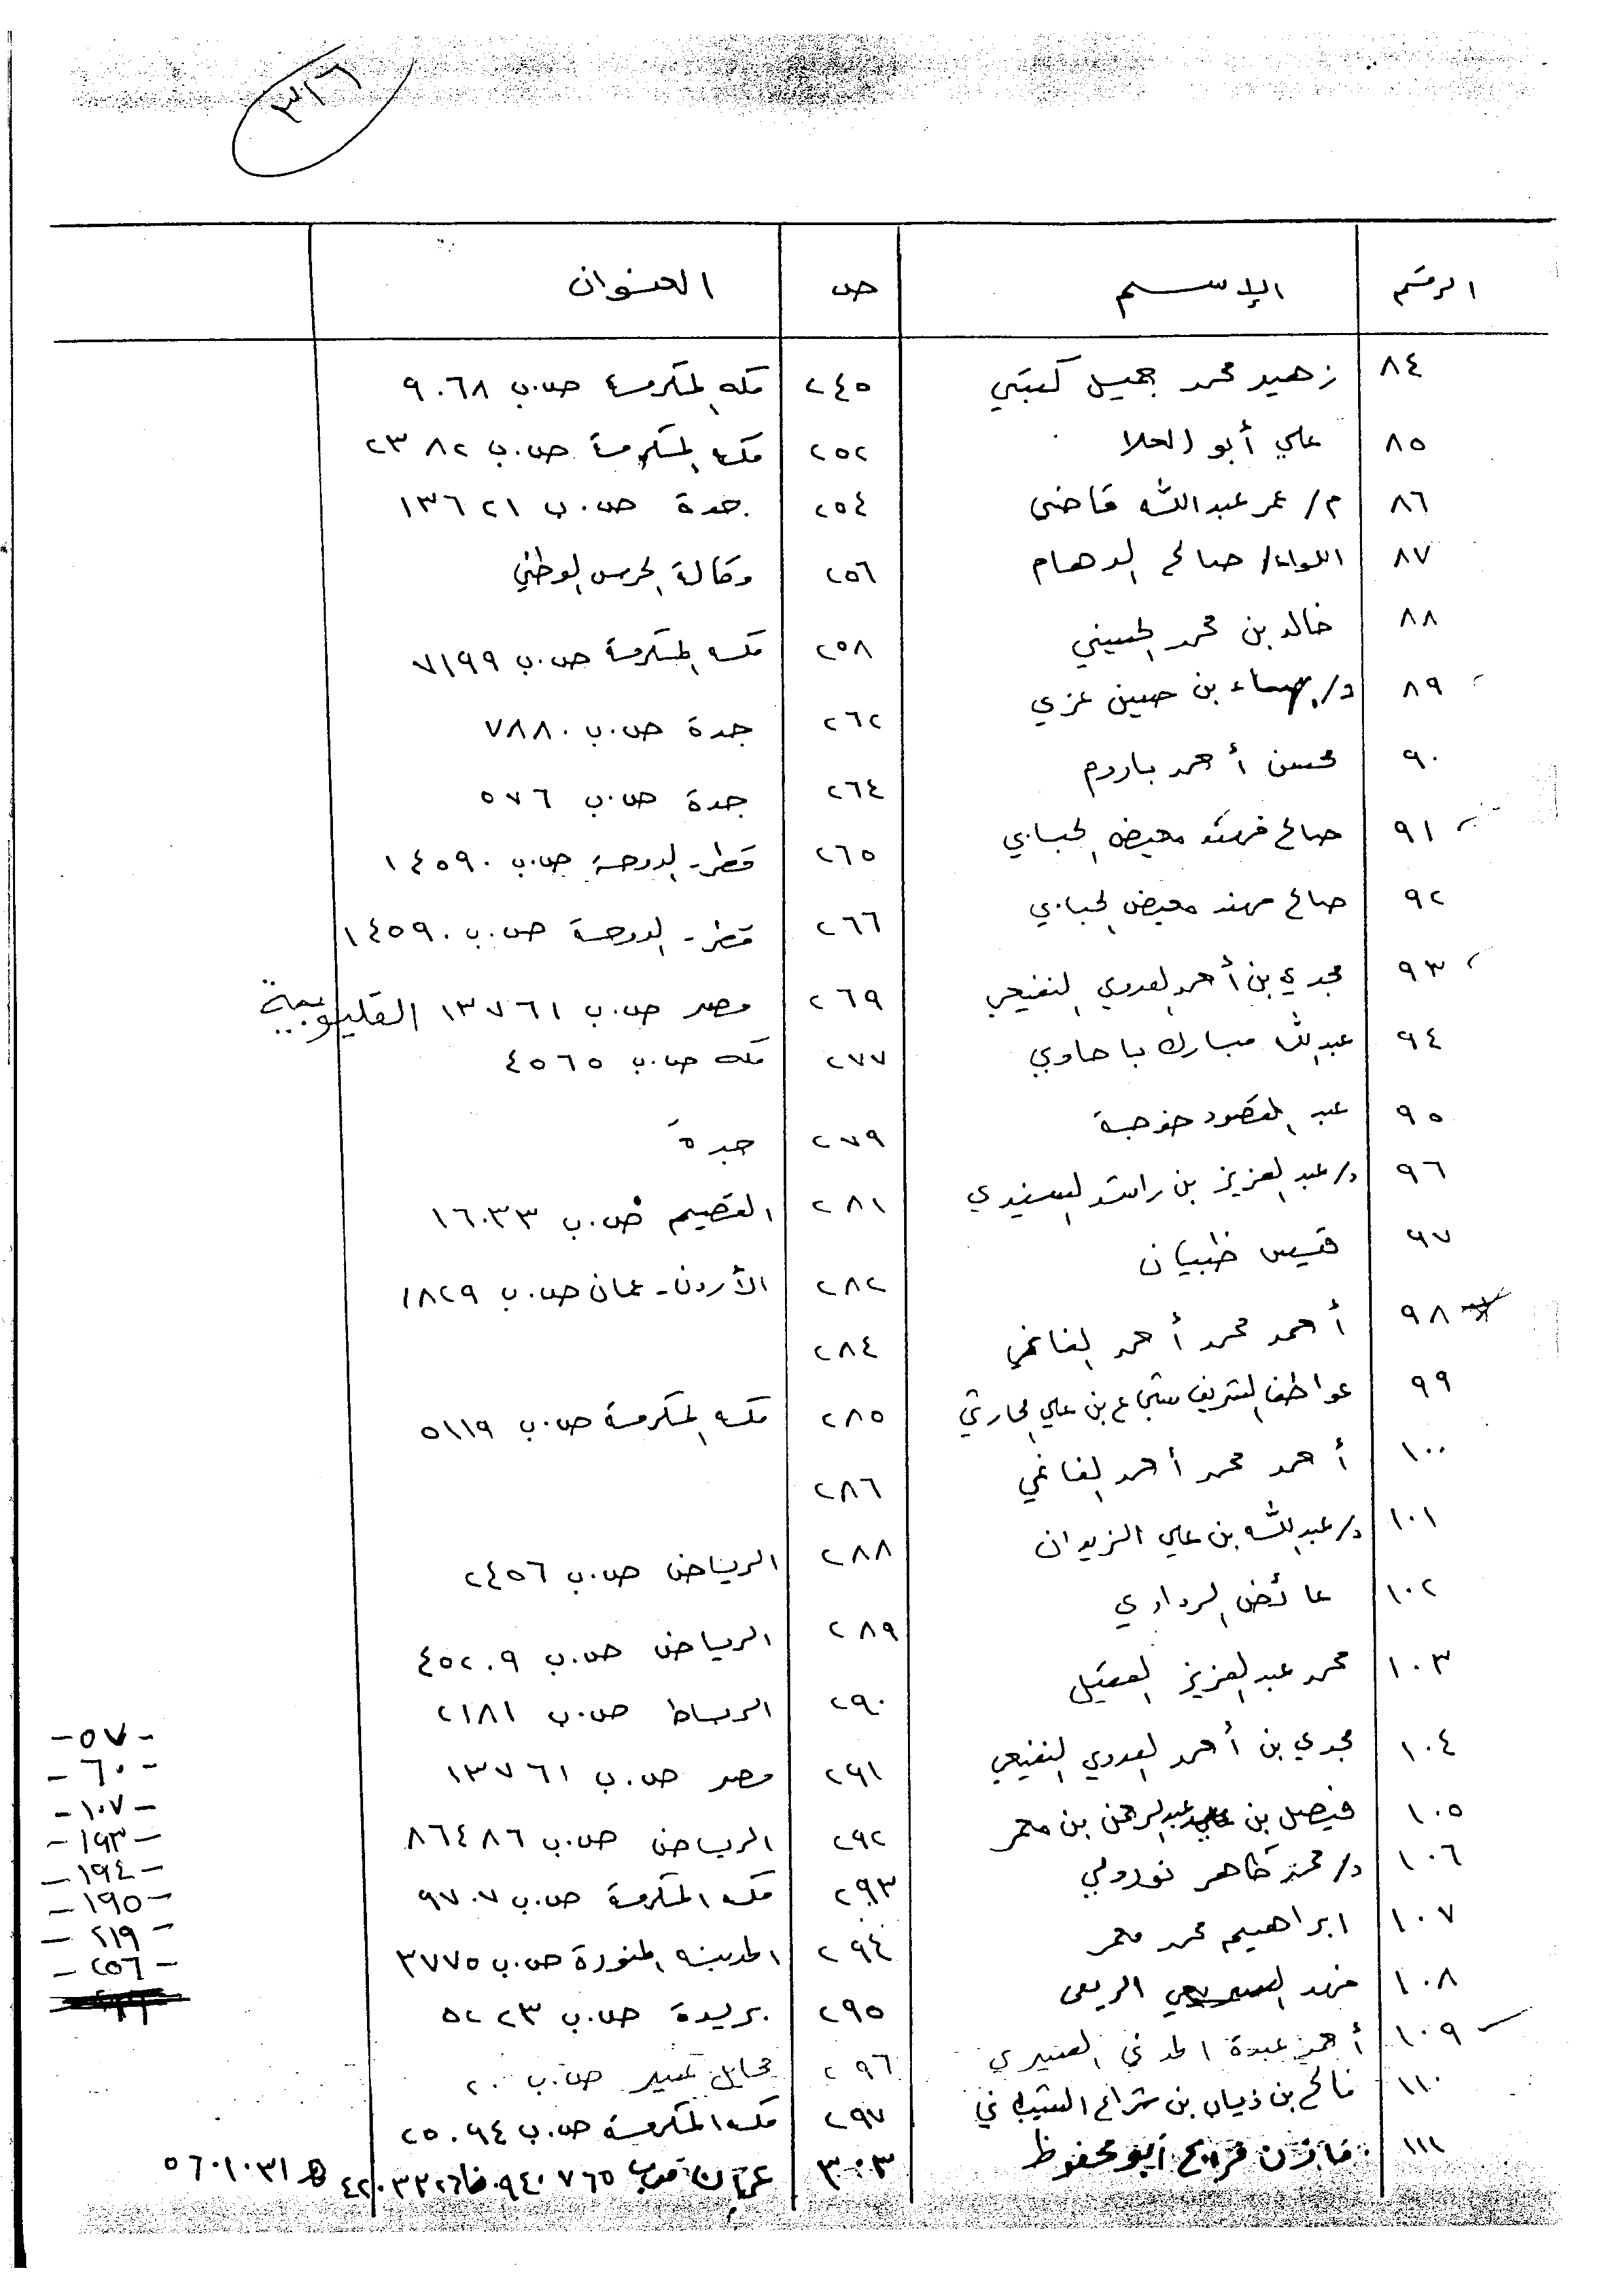 ٣٢٦
الرقم الإسم ص العنوان
٨٤ زهير محمد جميل كتبي ٢٤٥ مكه المكرمة ص.ب ٩٠٦٨
٨٥ علي أبو العلا ٢٥٢ مكه المكرمة ص.ب ٢٣٨٢
٨٦ م/ عمر عبدالله قاضي ٢٥٤ جدة ص.ب ١٣٦٢١
٨٧ اللواء/ صالح الدهام ٢٥٦ وكالة الحرس الوطني
٨٨ خالد بن محمد الحسيني ٢٥٨ مكه المكرمة ص.ب ٧١٩٩
٨٩ د/ بهاء بن حسين عزي ٢٦٢ جدة ص.ب ٧٨٨٠
٩٠ محسن أحمد باروم ٢٦٤ جدة ص.ب ٥٧٦
٩١ صالح فهد معيض الحبابي ٢٦٥ قطر - الدوحة ص.ب ١٤٥٩٠
٩٢ صالح معيض الحبابي ٢٦٦ قطر - الدوحة ص.ب ١٤٥٩٠
٩٣ مجدي بن أحمد العدوي ٢٦٩ مصر ص.ب ١٣٧٦١ القليوبية
٩٤ عبدالله مبارك باحاوي ٢٧٧ مكه ص.ب ٤٥٦٥
٩٥ عبد المقصود خوجة ٢٧٩ جدة
٩٦ د/ عبد العزيز بن راشد السنيدي ٢٨١ القصيم ص.ب ١٦٠٣٣
٩٧ قيس ظبيان ٢٨٢ الأردن - عمان ص.ب ١٨٢٩
٩٨ أحمد محمد أحمد الغانمي ٢٨٤
٩٩ عواطف الشريف شجاع بن علي الحارثي ٢٨٥ مكه المكرمة ص.ب ٥١١٩
١٠٠ أحمد محمد أحمد الغانمي ٢٨٦
١٠١ د/ عبدالله بن علي الزيدان ٢٨٨ الرياض ص.ب ٢٤٥٦
١٠٢ عائض الردادي ٢٨٩ الرياض ص.ب ٤٥٢٠٩
١٠٣ محمد عبد العزيز العقيل ٢٩٠ الرباط ص.ب ٢١٨١
١٠٤ مجدي بن أحمد العدوي ٢٩١ مصر ص.ب ١٣٧٦١
١٠٥ فيصل بن عبدالرحمن بن معمر ٢٩٢ الرياض ص.ب ٨٦٤٨٦
١٠٦ د/ طاهر نورولي ٢٩٣ مكه المكرمة ص.ب ٩٧٠٧
١٠٧ ابراهيم محمد معمر ٢٩٤ المدينه المنورة ص.ب ٣٧٧٥
١٠٨ فهد الربعي ٢٩٥ بريدة ص.ب ٥٢٢٣
١٠٩ أحمد عبدة المدني العسيري ٢٩٦ محايل عسير ص.ب ٢٠
١١٠ فالح بن ذياب بن ٢٩٧ مكه المكرمة ص.ب ٢٥٠٩٤
١١١ مازن فرايج أبو محفوظ ٣٠٣ عمان ص.ب ٩٤٠٧٦٥ فا ٤٢٠٣٣٢٦ هـ ٥٦٠١٠٣١
-٥٧-
-٦٠-
-١٠٧-
-١٩٣-
-١٩٤-
-١٩٥-
-٢١٩-
-٢٥٦-